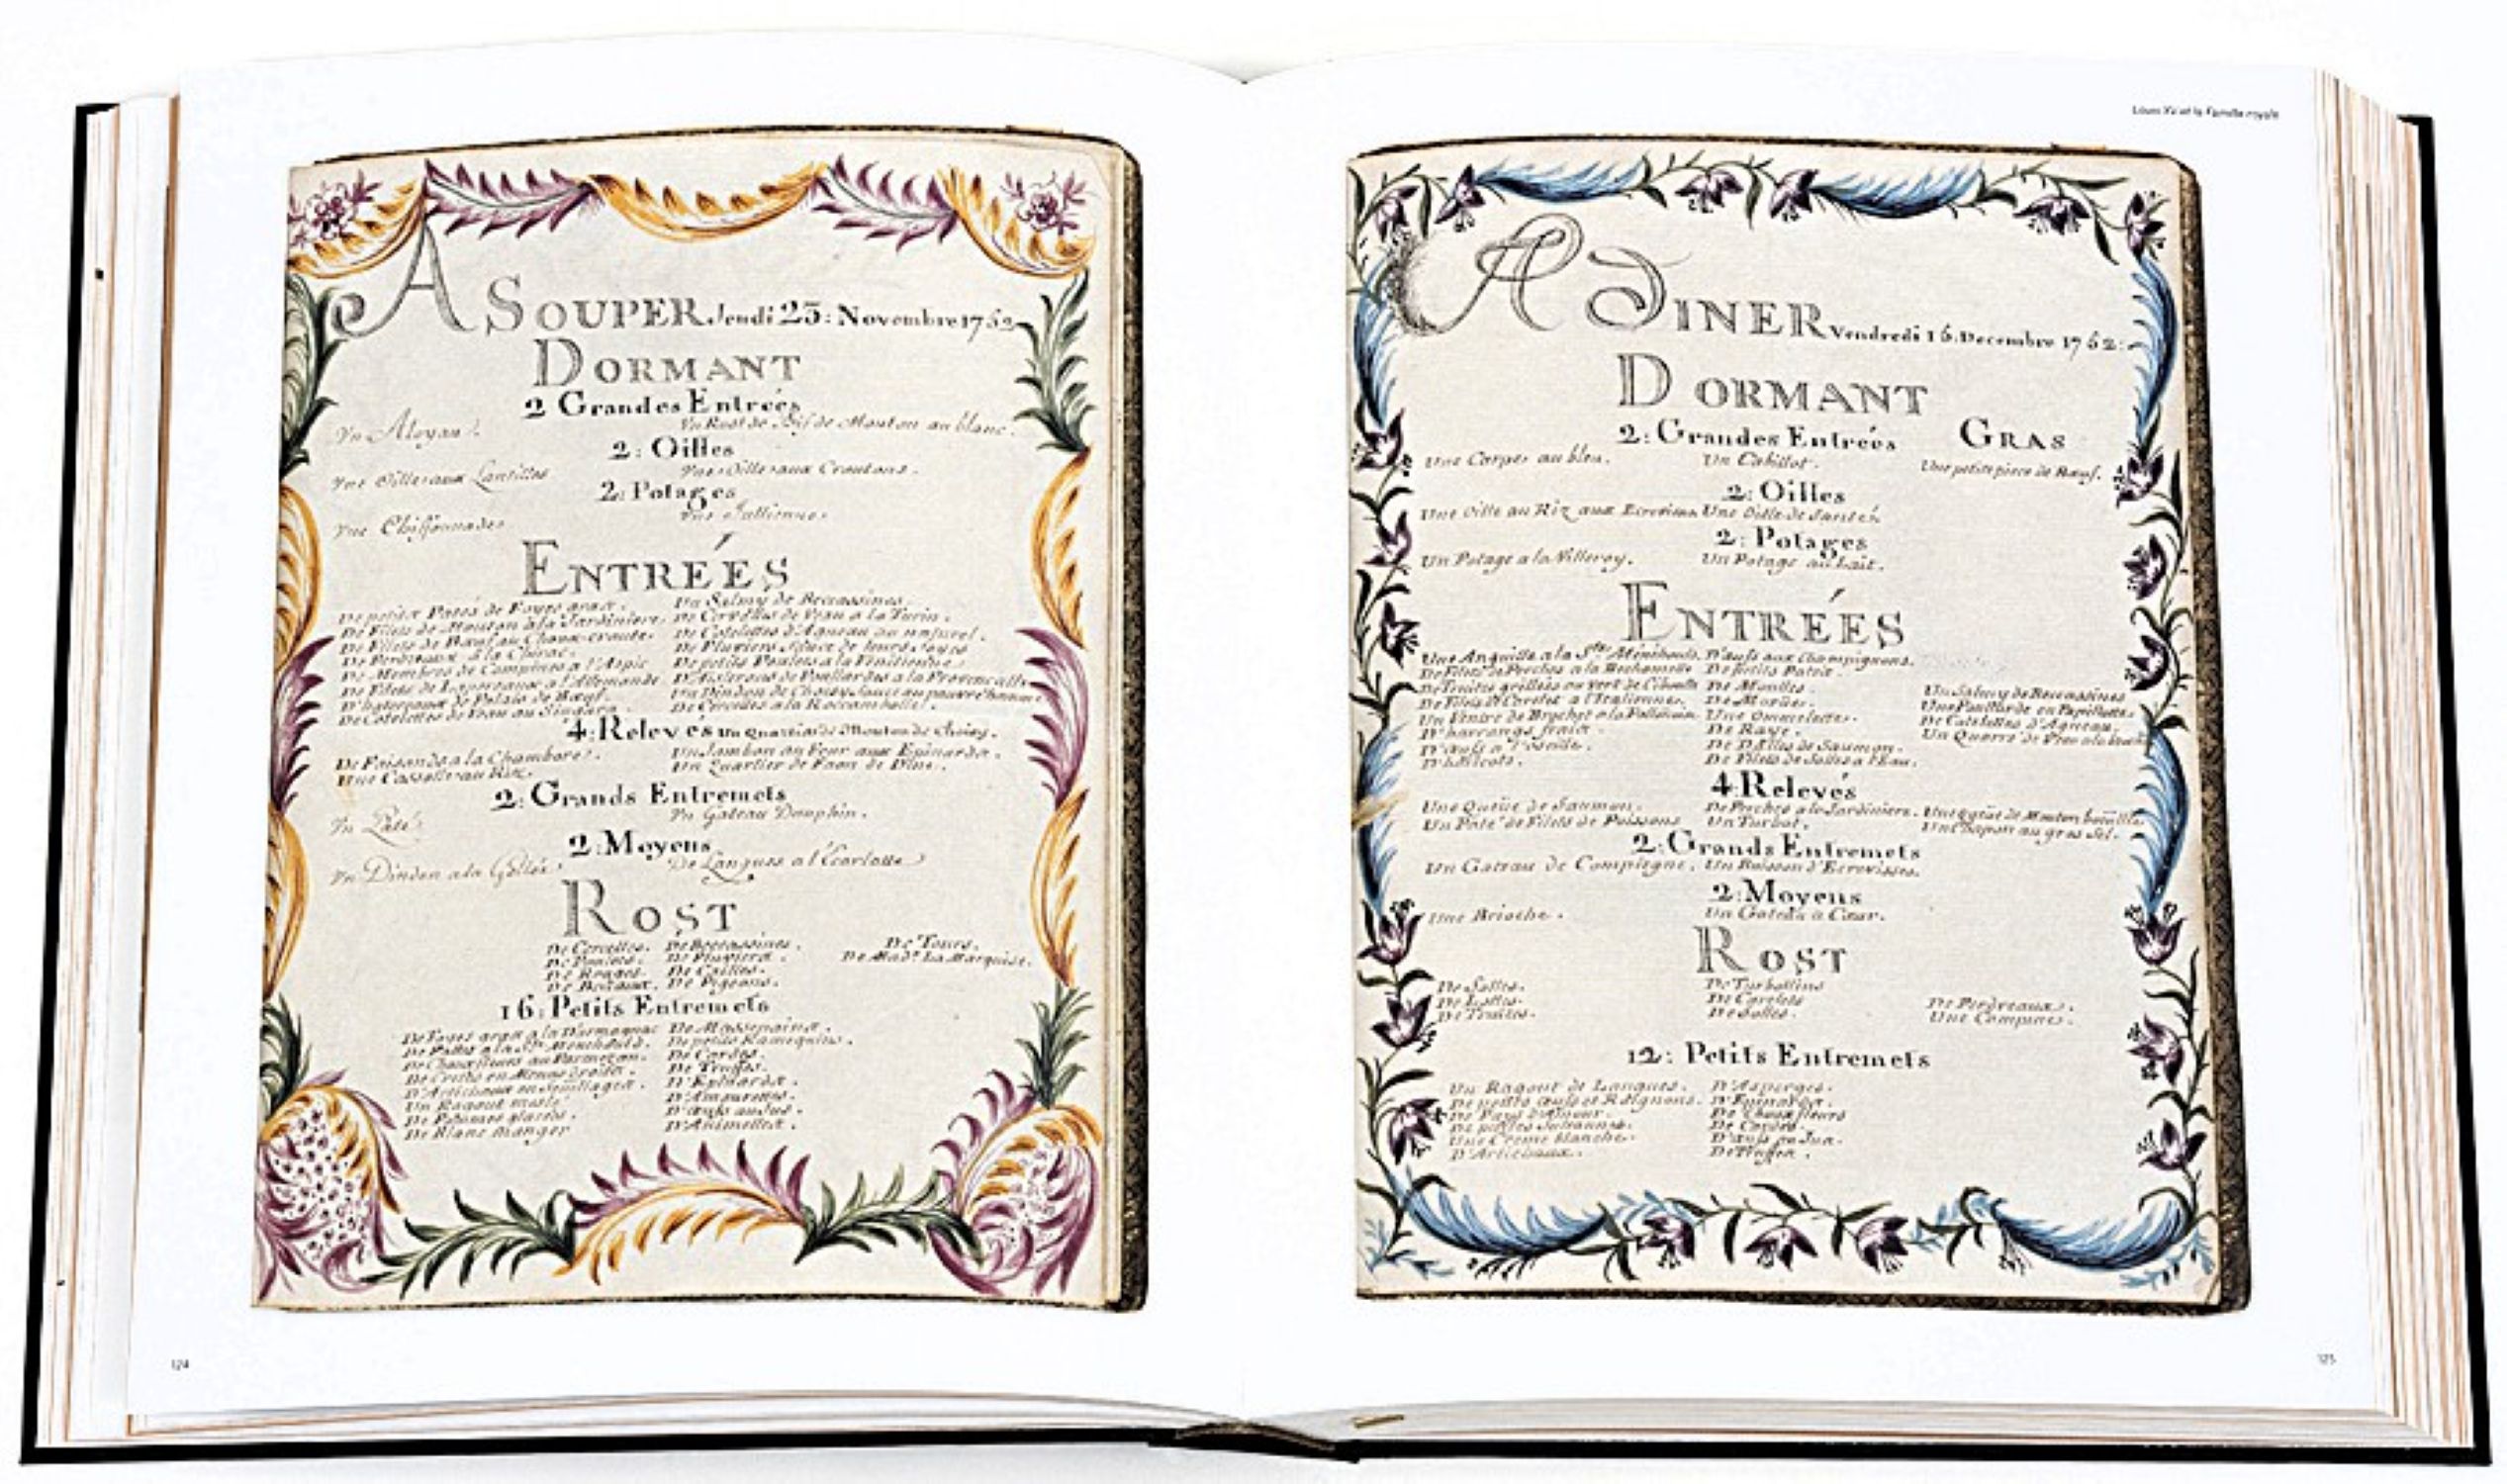 A SOUPER Jeudi 23: Novembre 1752
DORMANT
2 Grandes Entrées
Un Aloyau. Un Rost de Bif de Mouton au blanc.
2: Oilles
Une Oille aux Lantilles Une Oille aux Croutons.
2: Potages
Une Chiffonnade. Une Jullienne.
ENTRÉES
De petits Patés de Foyes gras. Un Salmy de Beccassines.
De Filets de Mouton à la Jardiniere. De Cervelles de Veau a la Turin.
De Filets de Bœuf au Choux-croute. De Cotelettes d'Agneau au naturel.
De Perdreaux à la Chirac. De Pluviers Sauce de leurs Foyes
De Membres de Campines a l'Aspic De petits Poulets a la Vénitienne.
De Filets de Lapereaux a l'Allemande D'Aislerons de Poullardes a la Provençalle
D'hatereaux de Palais de Bœuf. Un Dindon de Choisy Sauce au pauvre homme
De Cotelettes de Veau au Singara. De Cercelles a la Roccambolle.
4: Relevés Un Quartier de Mouton de Choisy.
De Faisands a la Chambore. Un Jambon au Four aux Epinards.
Une Casserolle au Ris. Un Quartier de Faon de Dine.
2: Grands Entremets
Un Paté. Un Gateau Dauphin.
2: Moyens
Un Dindon a la Gellée. De Langues a l'Écarlatte
ROST
De Cercelles. De Beccassines. De Tours.
De Poulets. De Pluviers. De Made La Marquise.
De Rouges. De Cailles.
De Pigeons.
16: Petits Entremets
De Foyes gras a la Darmagnac De Massepains.
De Pattes a la Ste Menehould. De petits Ramequins.
De Chouxfleurs au Parmezan. De Cardes.
De Cretes en Menus droits. De Truffes.
D'Artichaux en Feuillages. D'Epinards.
Un Ragout meslé D'Amourettes.
De Pommes glacées. D'œufs au Jus.
De Blanc Manger D'Animelles.
124
Louis XV et la Famille royale
A DINER Vendredi 15: Decembre 1752:
DORMANT
2: Grandes Entrées GRAS
Une Carpe au bleu. Un Cabillot. Une petite piece de Bœuf.
2: Oilles
Une Oille au Riz aux Ecrevisses Une Oille de Santé.
2: Potages
Un Potage a la Villeroy. Un Potage au Lait.
ENTRÉES
Une Anguille a la Ste Ménéhould. D'œufs aux Champignons.
De Filets de Perches a la Bechamelle De petits Patés.
De Truites grillées au vert de Ciboule De Moulles. Un Salmy de Beccassines
De Filets de Carelet a l'Italienne. De Morües. Une Poullarde en Papillotte.
Un Ventre de Brochet a la Polonoise Une Ommelette. De Cotelettes d'Agneau.
D'harrangs frais. De Raye. Un Quarré de Veau a la
D'œufs a l'oseille. De Dalles de Saumon.
D'haricots. De Filets de Solles a l'Eau.
4: Relevés
Une Queüe de Saumon. De Perches a la Jardiniere. Une queüe de Mouton bouillie.
Un Paté de Filets de Poissons Un Turbot. Un Chapon au gros Sel.
2: Grands Entremets
Un Gateau de Compiegne. Un Buisson d'Ecrevisses.
2: Moyens
Une Brioche. Un Gateau a Cœur.
ROST
De Solles. De Turbottins
De Lottes. De Carelets De Perdreaux.
De Truites. De Solles. Une Campine.
12: Petits Entremets
Un Ragout de Langues. D'Asperges.
De petits œufs et Rognons. D'Epinards.
De Pays d'Amour. De Chouxfleurs
De petites Juliennes. De Cardes.
Une Crème blanche. D'œufs au Jus.
D'Artichaux. De Truffes.
125